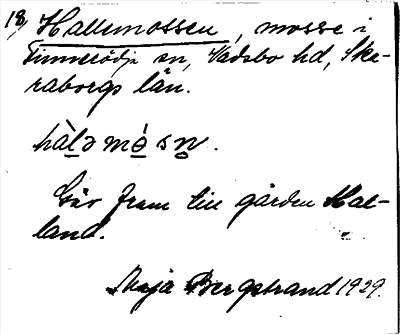 18, Hallemossen, mosse i
Finnerödja sn, Vadsbo hd, Ska-
raborgs län.
hàlə mó̱ sn̥.
Går fram till gården Hal-
land.
Maja Bergstrand 1929.